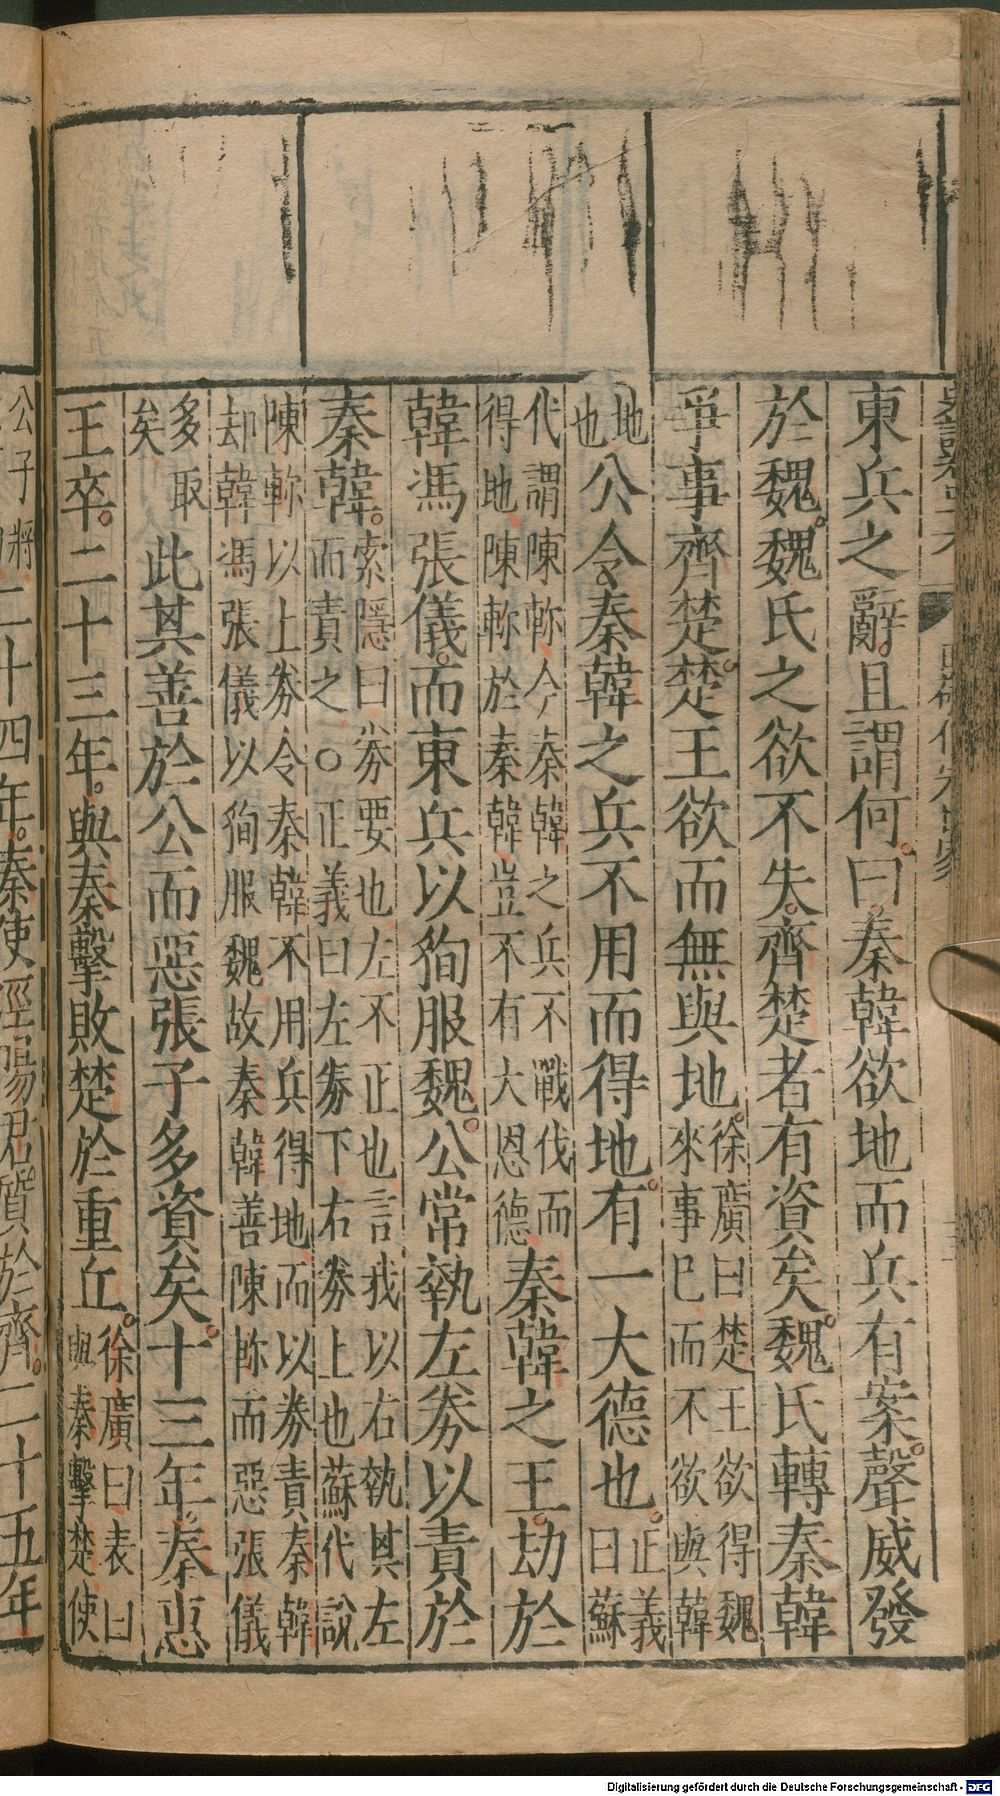 東兵之辭。且謂何。曰秦韓欲地而兵有案。聲威發
於魏。魏氏之欲不失。齊楚者有資矣。魏氏轉秦韓
爭事齊楚。楚王欲而無與地。徐廣曰楚王欲得魏
來事已而不欲與韓
地
也
公令秦韓之兵不用而得地。有一大德也。正義
曰蘇
代謂陳軫今秦韓之兵不戰伐而
得地陳軫於秦韓豈不有大恩德
秦韓之王。劫於
韓馮張儀。而東兵以狥服魏。公常執左劵以責於
秦韓。索隱曰劵要也左不正也言我以右執其左
而責之○正義曰左劵下右劵上也蘇代說
陳軫以上劵令秦韓不用兵得地而以劵責秦韓
却韓馮張儀以狥服魏故秦韓善陳軫而惡張儀
多取
矣
此其善於公而惡張子多資矣。十三年。秦惠
王卒。二十三年。與秦擊敗楚於重丘。徐廣曰表曰
與秦擊楚使
公子將
二十四年。秦使涇陽君質於齊。二十五年
Digitalisierung gefördert durch die Deutsche Forschungsgemeinschaft - DFG